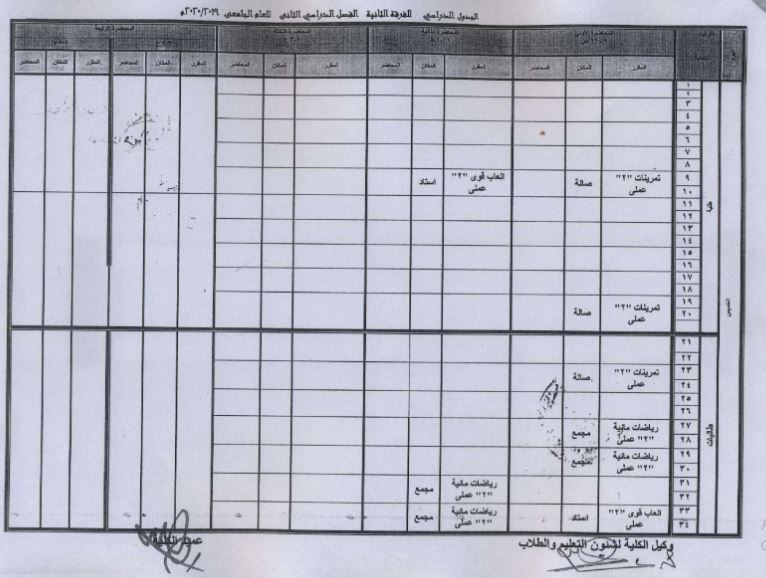 الجدول الدراسي للفرقة الثانية الفصل الدراسي الثاني للعام الجامعي ٢٠٢٠/٢٠١٩م
المحاضرة الأولى المحاضرة الثانية المحاضرة الثالثة المحاضرة الرابعة
المقرر المكان المحاضر المقرر المكان المحاضر المقرر المكان المحاضر المقرر المكان المحاضر المقرر المكان المحاضر
الخميس
طلبة
١
٢
٣
٤
٥
٦
٧
٨
٩ تمرينات "٢" صالة العاب قوى "٢" استاد
١٠ عملى عملى
١١
١٢
١٣
١٤
١٥
١٦
١٧
١٨
١٩ تمرينات "٢" صالة
٢٠ عملى
طالبات
٢١
٢٢
٢٣ تمرينات "٢" صالة
٢٤ عملى
٢٥
٢٦
٢٧ رياضات مائية مجمع
٢٨ "٢" عملى
٢٩ رياضات مائية مجمع
٣٠ "٢" عملى
٣١ رياضات مائية مجمع
٣٢ "٢" عملى
٣٣ العاب قوى "٢" استاد رياضات مائية مجمع
٣٤ عملى "٢" عملى
وكيل الكلية لشئون التعليم والطلاب عميد الكلية